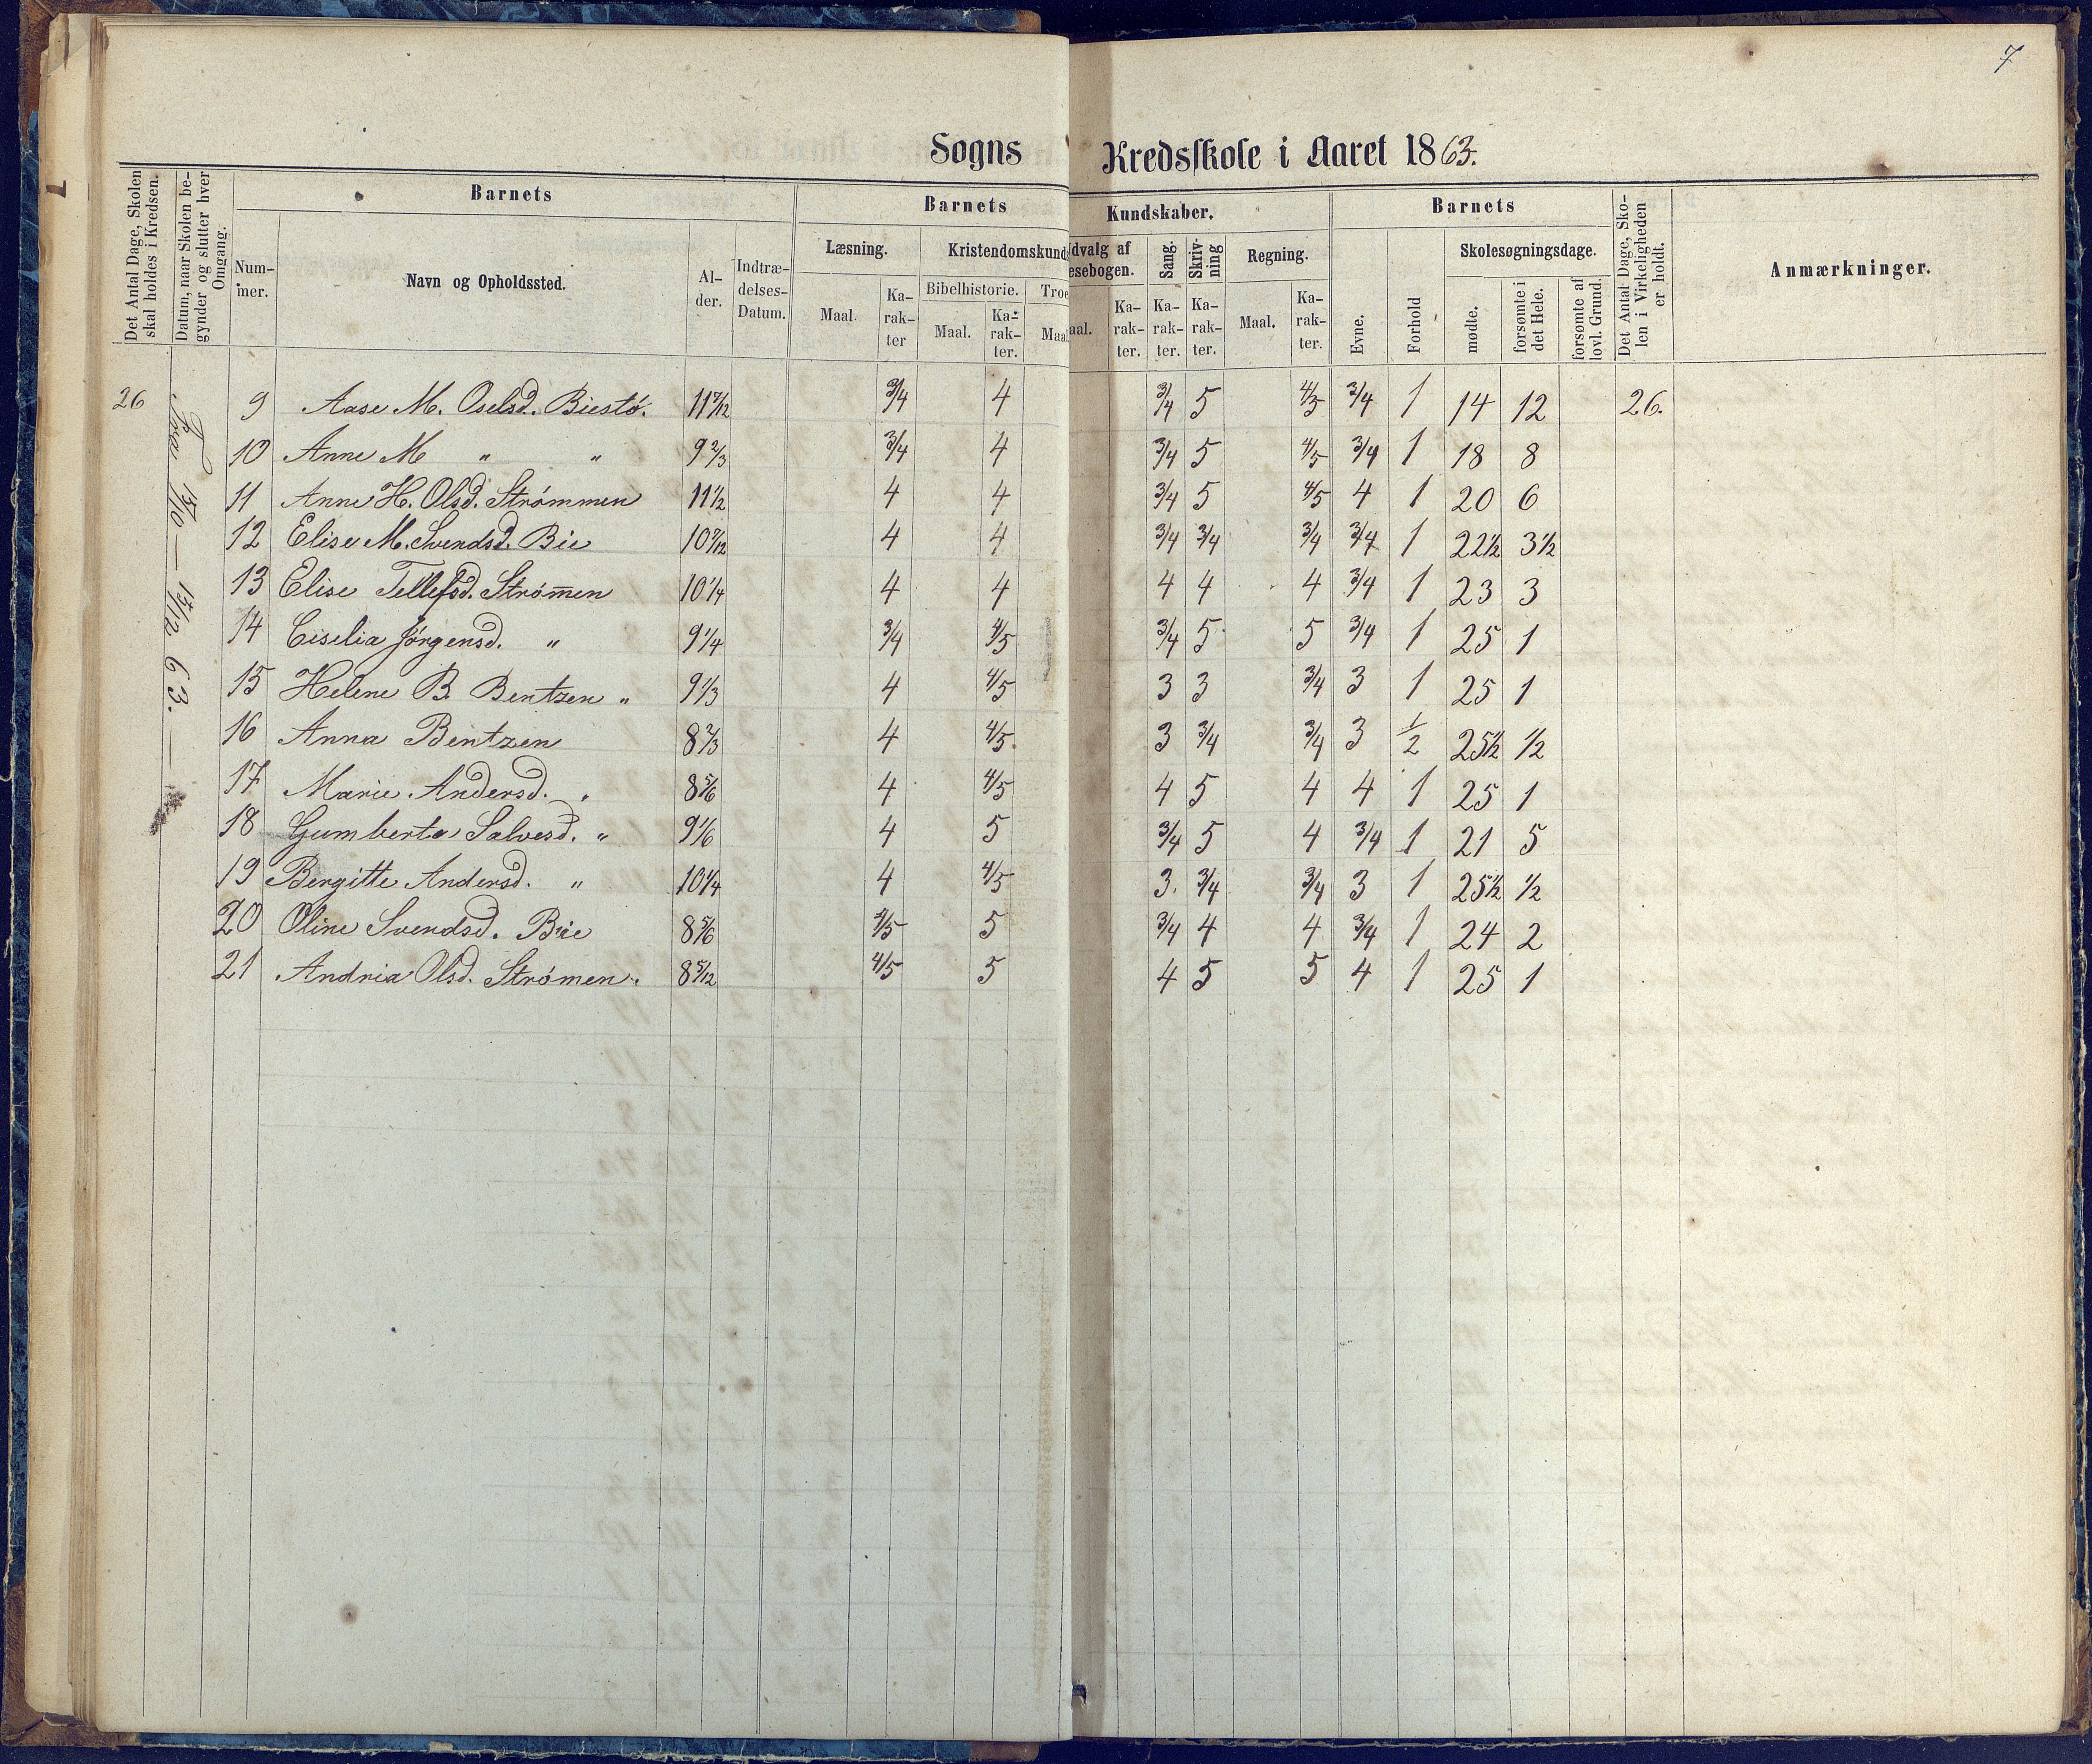 7
Sogns Kredsskole i Aaret 1863.
Det Antal Dage, Skolen skal holdes i Kredsen.
Datum, naar Skolen begynder og slutter hver Omgang.
Barnets
Barnets
Kundskaber.
Barnets
Det Antal Dage, Skolen i Virkeligheden er holdt.
Anmærkninger.
Nummer.
Navn og Opholdssted.
Alder.
Indtrædelses-Datum.
Læsning.
Kristendomskund
dvalg af
esebogen.
Sang.
Skrivning
Regning.
Evne.
Forhold
Skolesøgningsdage.
Bibelhistorie.
Troe
Maal.
Karakter
Maal.
Karakter.
Maal
aal.
Karakter.
Karakter.
Karakter.
Maal.
Karakter.
mødte.
forsømte i det Hele.
forsømte af lovl. Grund.
Fra 15/10 — 15/12 63. —
26 9 Aase M. Oselsd. Biestø. 11 7/12 3/4 4 3/4 5 4/5 3/4 1 14 12 26.
10 Anne M " " 9 2/3 3/4 4 3/4 5 4/5 3/4 1 18 8
11 Anne H. Olsd. Strømmen 11 1/2 4 4 3/4 5 4/5 4 1 20 6
12 Elise M. Svendsd. Bie 10 7/12 4 4 3/4 3/4 3/4 3/4 1 22 1/2 3 1/2
13 Elise Tellefsd. Strøm̄en 10 1/4 4 4 4 4 4 3/4 1 23 3
14 Ciselia Jørgensd. " 9 1/4 3/4 4/5 3/4 5 5 3/4 1 25 1
15 Helene B. Bentzen " 9 1/3 4 4/5 3 3 3/4 3 1 25 1
16 Anna Bentzen 8 2/3 4 4/5 3 3/4 3/4 3 1/2 25 1/2 1/2
17 Marie Andersd. " 8 5/6 4 4/5 4 5 4 4 1 25 1
18 Gumberta Salvesd. " 9 1/6 4 5 3/4 5 4 3/4 1 21 5
19 Bergitte Andersd. " 10 1/4 4 4/5 3. 3/4 3/4 3 1 25 1/2 1/2
20 Oline Svendsd. Bie 8 5/6 4/5 5 3/4 4 4 3/4 1 24 2
21 Andria Olsd. Strømen. 8 5/12 4/5 5 4 5 5 4 1 25 1